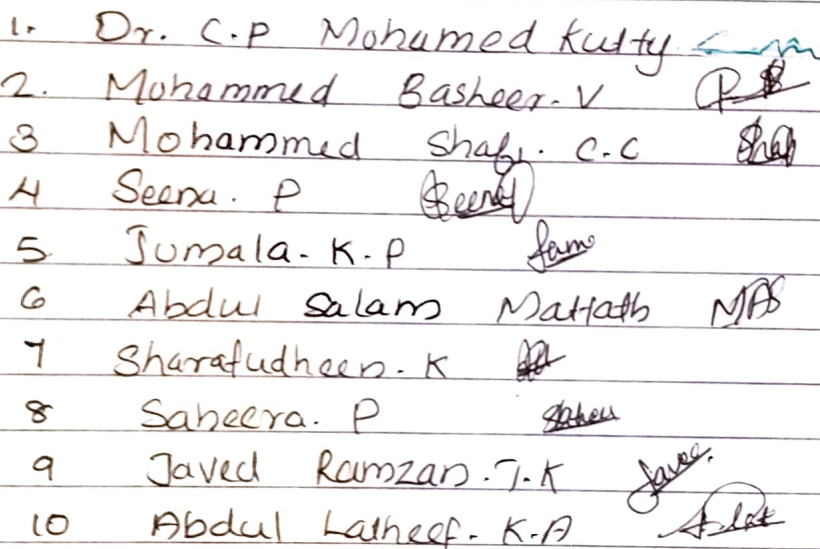 1. Dr. C.P Mohamed Kutty
2. Mohammed Basheer. V
3 Mohammed Shafi. C.C
4 Seena. P
5 Jumala. K.P
6 Abdul Salam Mattath MAS
7 Sharafudheen. K
8 Saheera. P
9 Javed Ramzan. T.K
10 Abdul Latheef. K.A